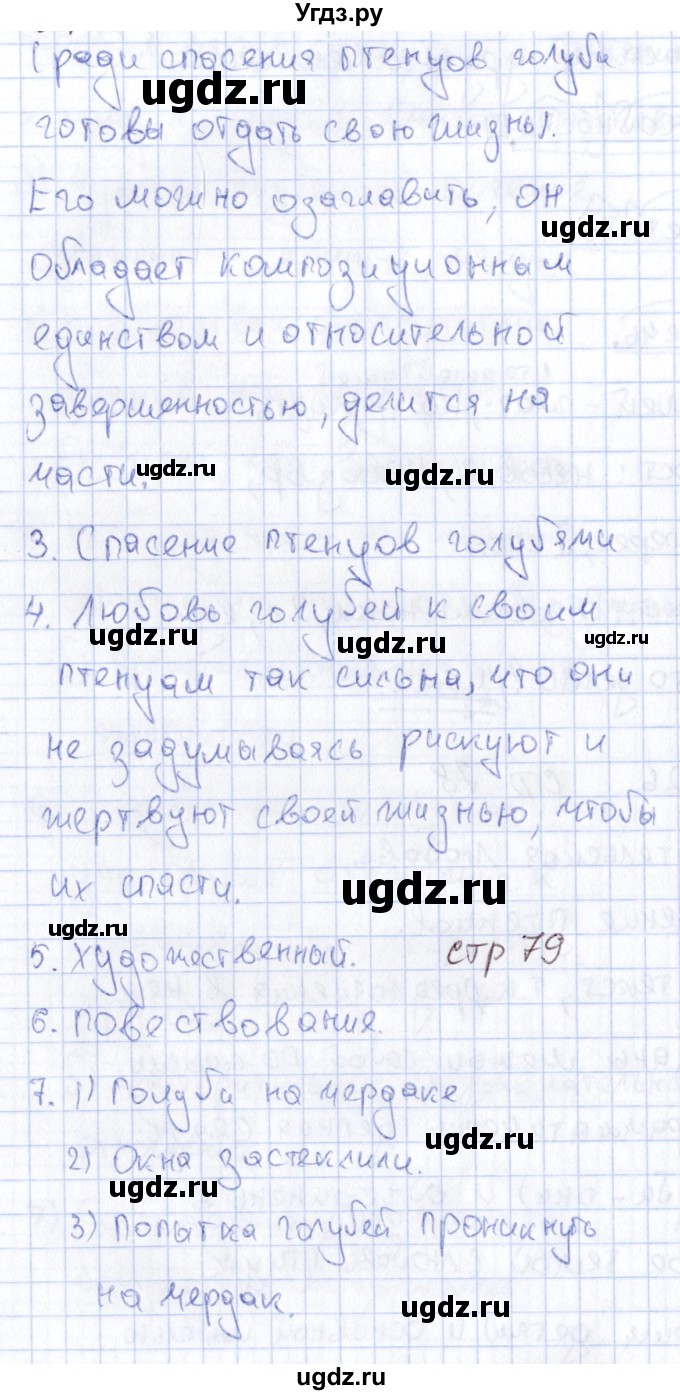 Угдз.ру
(ради спасения птенцов голуби
ugdz.ru
готовы отдать свою жизнь).
Его можно озаглавить, он
ugdz.ru
обладает композиционным
единством и относительной
завершенностью, делится на
части.
ugdz.ru ugdz.ru
3. Спасение птенцов голубями
4. Любовь голубей к своим
ugdz.ru ugdz.ru ugdz.ru
птенцам так сильна, что они
не задумываясь рискуют и
жертвуют своей жизнью, чтобы
их спасти.
ugdz.ru
ugdz.ru
5. Художественный. стр 79
6. Повествования.
7. 1) Голуби на чердаке
ugdz.ru
2) Окна застеклили.
ugdz.ru
3) Попытка голубей проникнуть
на чердак.
ugdz.ru
ugdz.ru